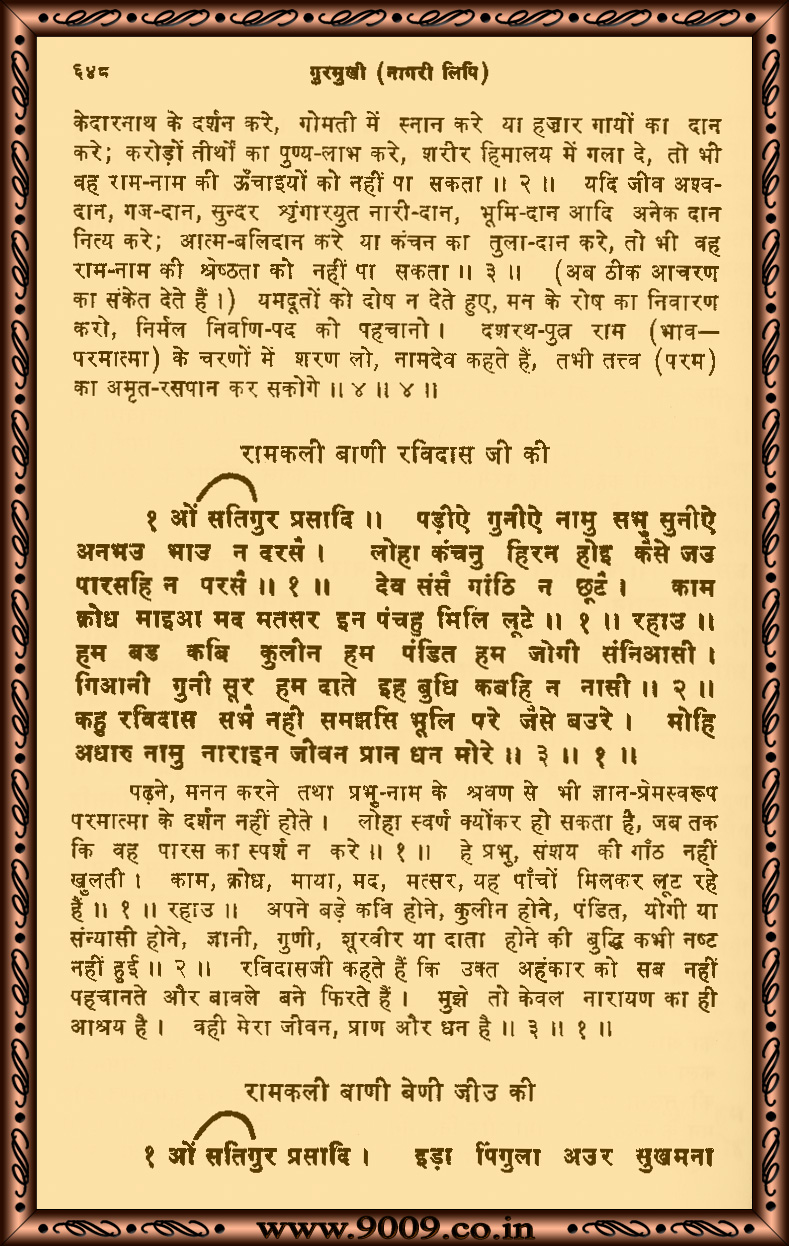 ६४८ गुरमुखी (नागरी लिपि)
केदारनाथ के दर्शन करे, गोमती में स्नान करे या हज़ार गायों का दान
करे; करोड़ों तीर्थों का पुण्य-लाभ करे, शरीर हिमालय में गला दे, तो भी
वह राम-नाम की ऊँचाइयों को नहीं पा सकता ॥ २ ॥ यदि जीव अश्व-
दान, गज-दान, सुन्दर शृंगारयुत नारी-दान, भूमि-दान आदि अनेक दान
नित्य करे; आत्म-बलिदान करे या कंचन का तुला-दान करे, तो भी वह
राम-नाम की श्रेष्ठता को नहीं पा सकता ॥ ३ ॥ (अब ठीक आचरण
का संकेत देते हैं ।) यमदूतों को दोष न देते हुए, मन के रोष का निवारण
करो, निर्मल निर्वाण-पद को पहचानो । दशरथ-पुत्र राम (भाव—
परमात्मा) के चरणों में शरण लो, नामदेव कहते हैं, तभी तत्त्व (परम)
का अमृत-रसपान कर सकोगे ॥ ४ ॥ ४ ॥
रामकली बाणी रविदास जी की
१ ओं सतिगुर प्रसादि ॥ पड़ीऐ गुनीऐ नामु सभु सुनीऐ
अनभउ भाउ न दरसै । लोहा कंचनु हिरन होइ कैसे जउ
पारसहि न परसै ॥ १ ॥ देव संसै गांठि न छूटै । काम
क्रोध माइआ मद मतसर इन पंचहु मिलि लूटे ॥ १ ॥ रहाउ ॥
हम बड कबि कुलीन हम पंडित हम जोगी संनिआसी ।
गिआनी गुनी सूर हम दाते इह बुधि कबहि न नासी ॥ २ ॥
कहु रविदास सभै नही समझसि भूलि परे जैसे बउरे । मोहि
अधारु नामु नाराइन जीवन प्रान धन मोरे ॥ ३ ॥ १ ॥
पढ़ने, मनन करने तथा प्रभु-नाम के श्रवण से भी ज्ञान-प्रेमस्वरूप
परमात्मा के दर्शन नहीं होते । लोहा स्वर्ण क्योंकर हो सकता है, जब तक
कि वह पारस का स्पर्श न करे ॥ १ ॥ हे प्रभु, संशय की गाँठ नहीं
खुलती । काम, क्रोध, माया, मद, मत्सर, यह पाँचों मिलकर लूट रहे
हैं ॥ १ ॥ रहाउ ॥ अपने बड़े कवि होने, कुलीन होने, पंडित, योगी या
संन्यासी होने, ज्ञानी, गुणी, शूरवीर या दाता होने की बुद्धि कभी नष्ट
नहीं हुई ॥ २ ॥ रविदासजी कहते हैं कि उक्त अहंकार को सब नहीं
पहचानते और बावले बने फिरते हैं । मुझे तो केवल नारायण का ही
आश्रय है । वही मेरा जीवन, प्राण और धन है ॥ ३ ॥ १ ॥
रामकली बाणी बेणी जीउ की
१ ओं सतिगुर प्रसादि । इड़ा पिंगुला अउर सुखमना
www.9009.co.in